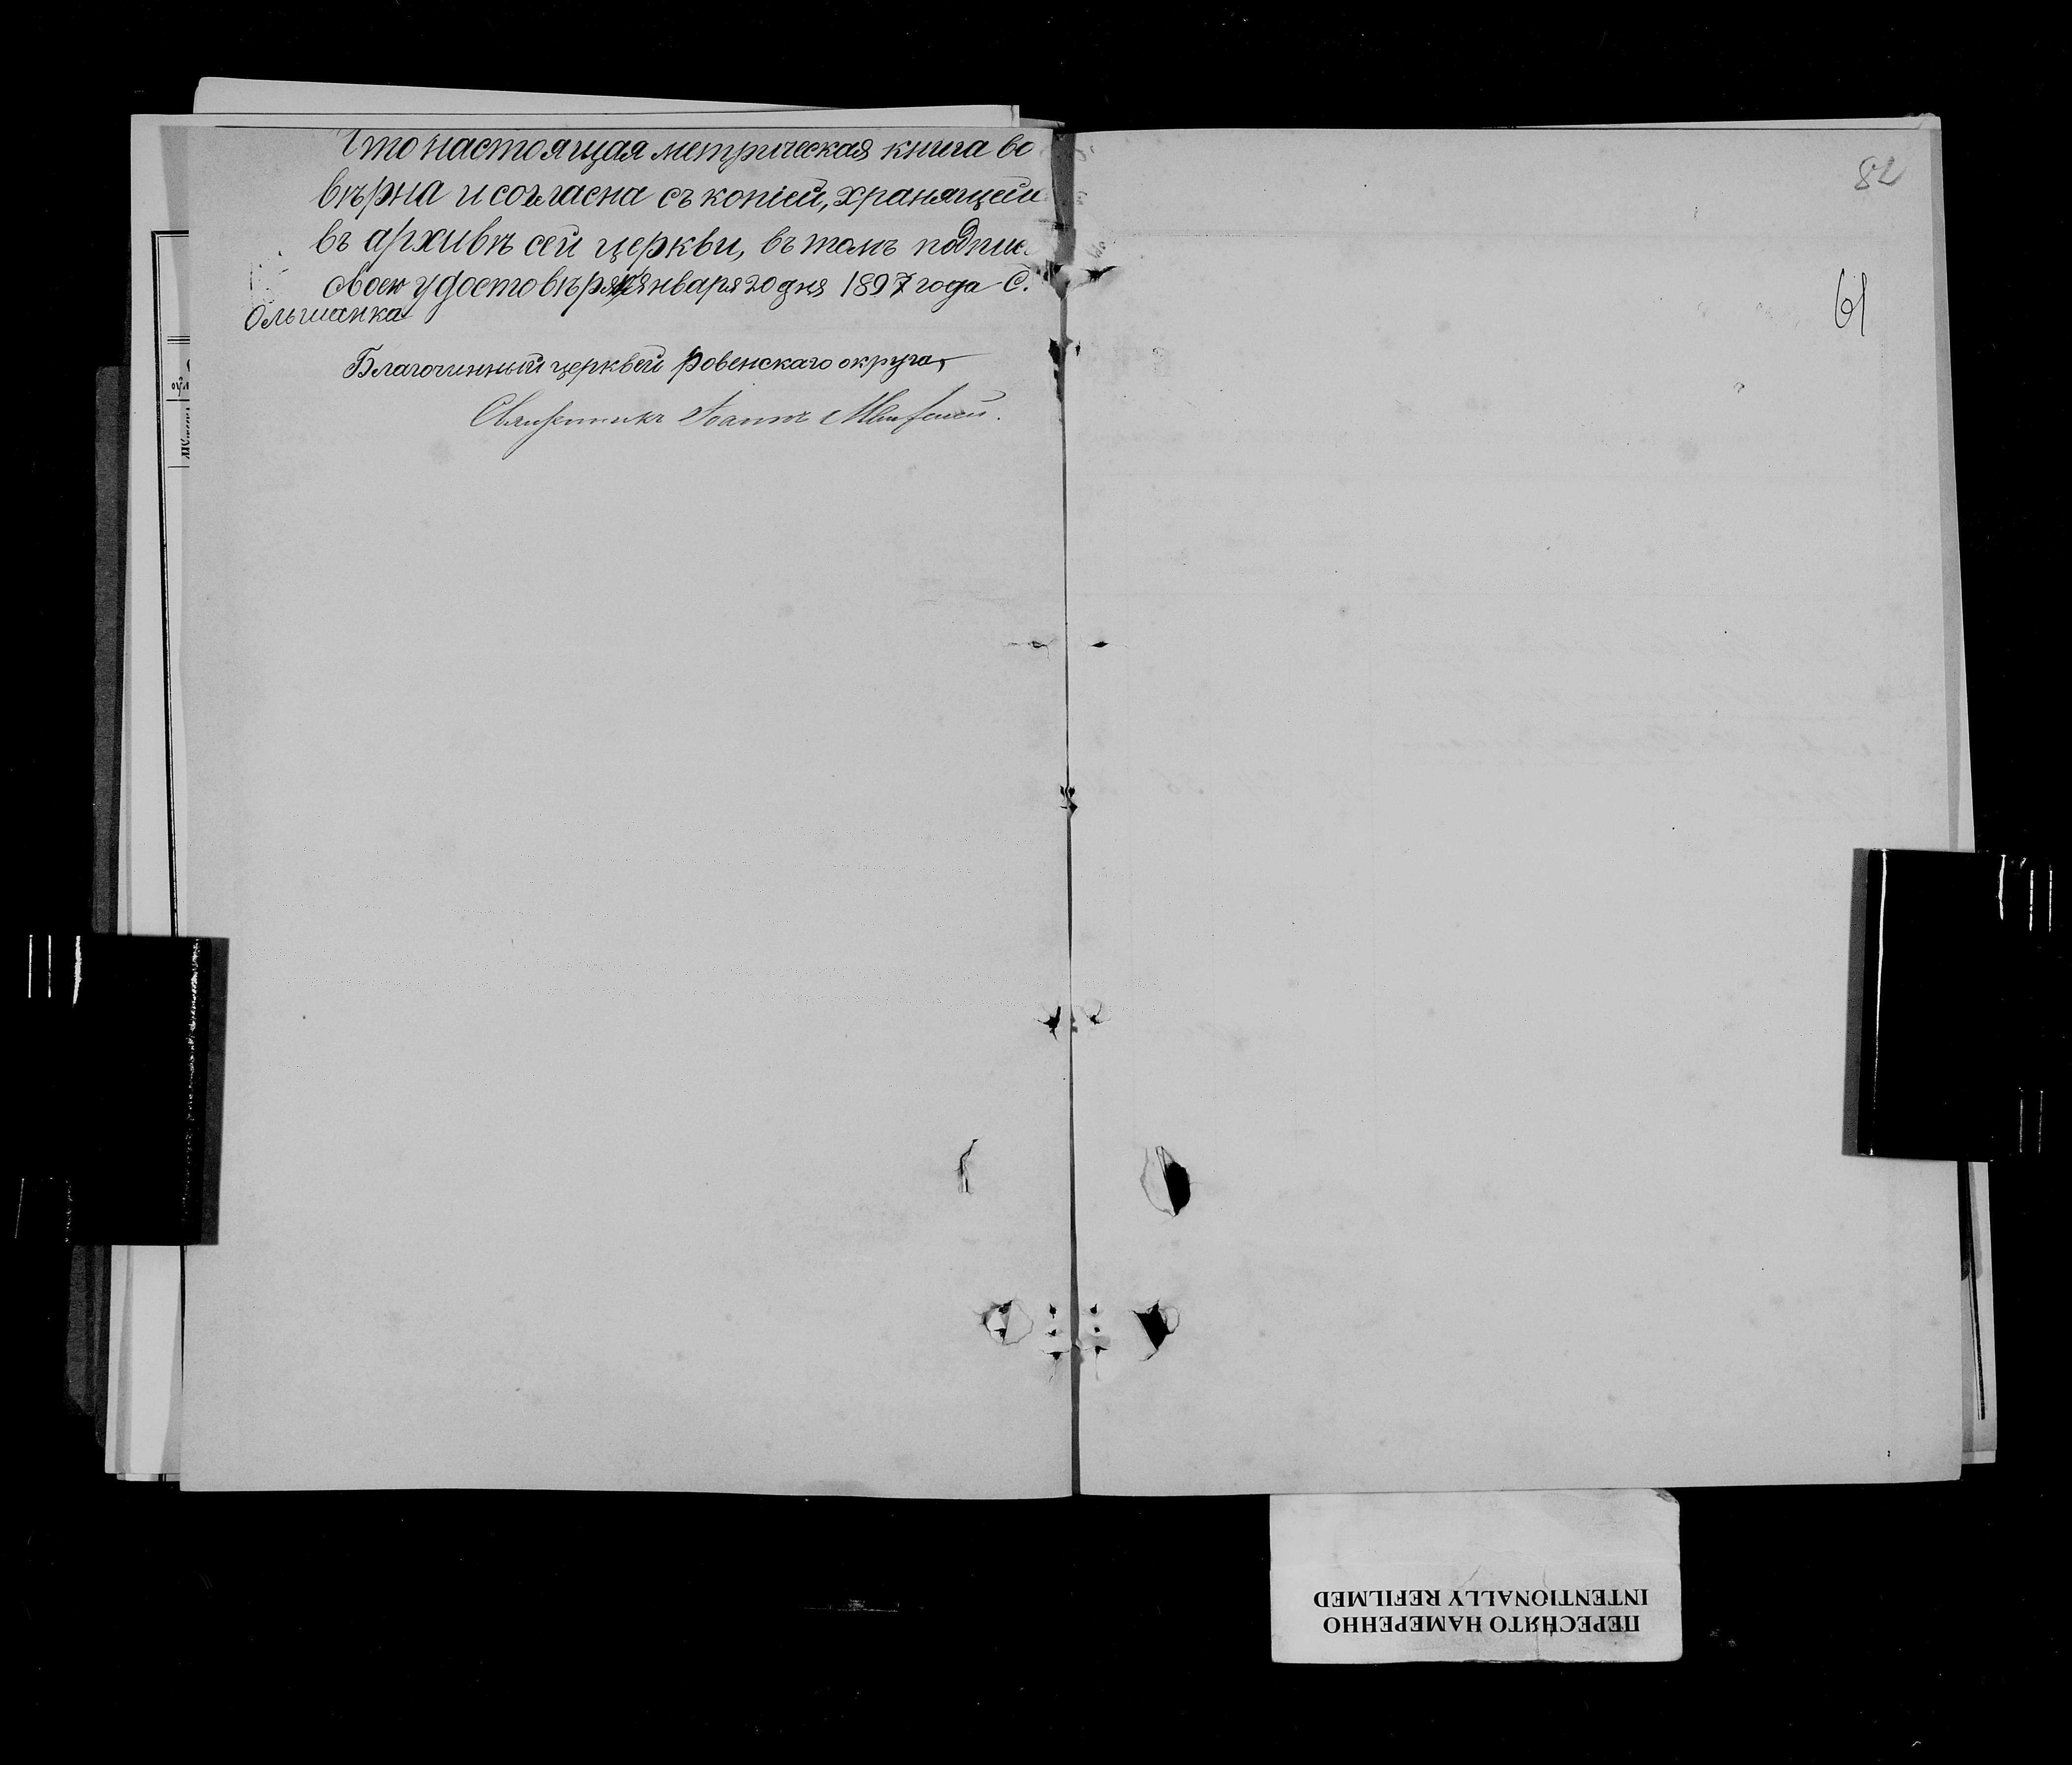 Что настоящая метрическая книга во
вѣрна и согласна съ копіей, хранящейся
въ архивѣ сей церкви, въ томъ подпис
своею удостовѣряю Января 20 дня 1897 года С.
Ольшанка
Благочинный церквей Ровенскаго округа,
Священникъ Іоаннъ
82
61
ПЕРЕСНЯТО НАМЕРЕННО
INTENTIONALLY REFILMED